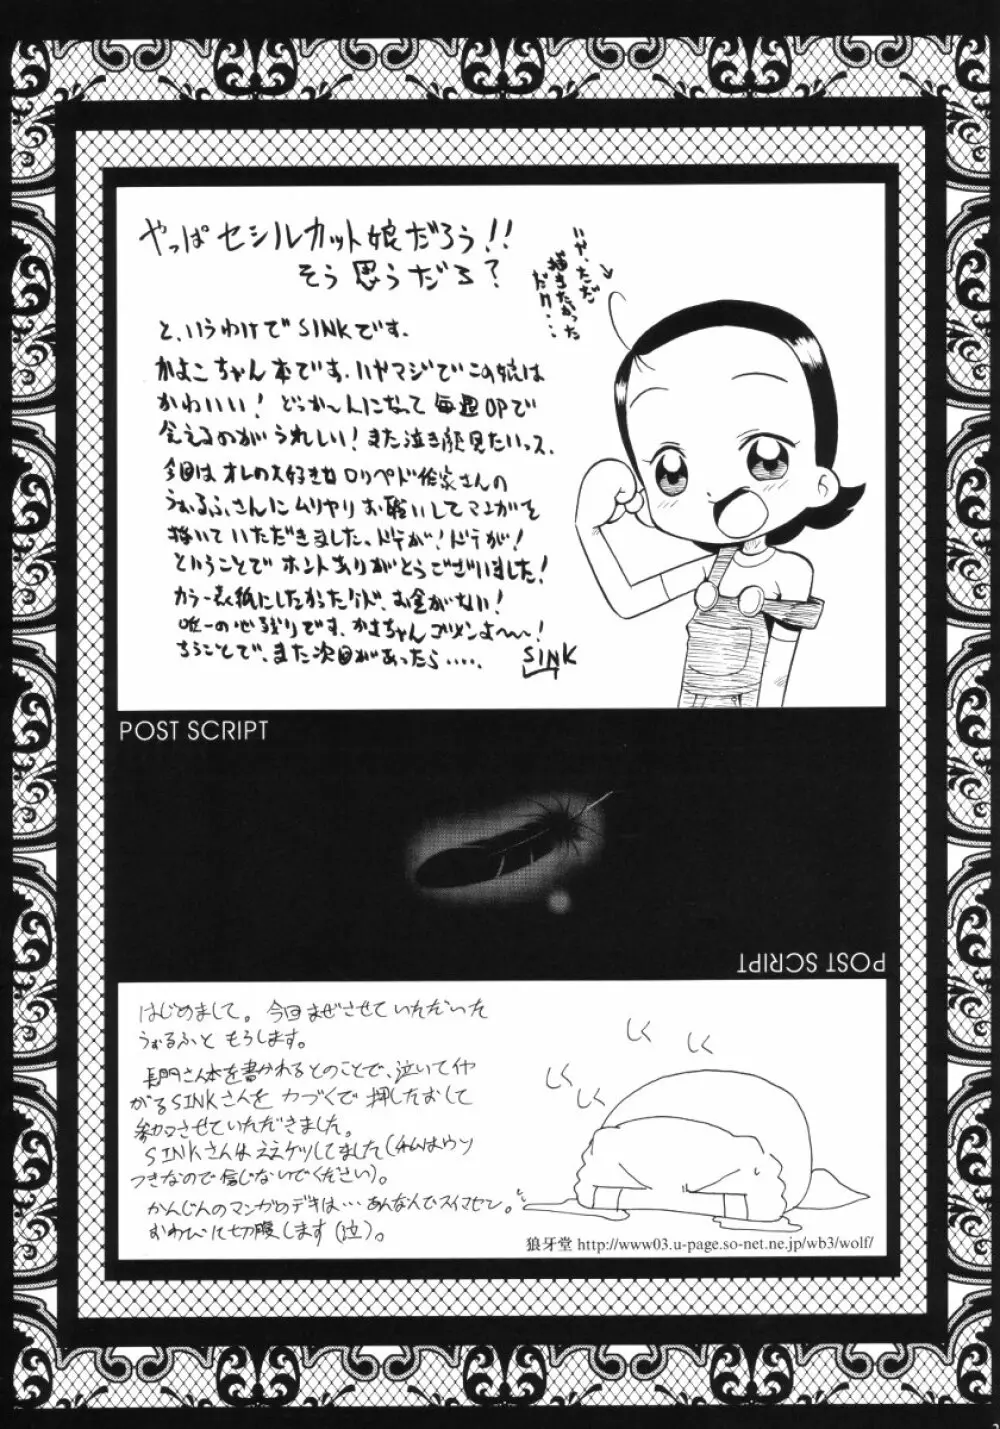 やっぱセシルカット娘だろう!!
そう思うだろ?
いや、ただ
描きたかった
だけ…
と、いうわけでSINKです.
かよこちゃん本です.いやマジでこの娘は
かわいい!どっか~人になって毎週OPで
会えるのがうれしい!また泣き顔見たいっス.
今回はオレの大好きなロリペド作家さんの
うぉるふさんにムリヤリお願いしてマンガを
描いていただきました。ドテが!ドテが!
ということでホントありがとうございました!
カラー表紙にしたかったケド、お金がない!
唯一の心残りです、かよちゃんゴメンよ~~!
ということで、また次回があったら....
SINK
POST SCRIPT
POST SCRIPT
はじめまして。今回まぜさせていただいた
うぉるふと もうします。
長門さん本を書かれるとのことで、泣いてイヤ
がるSINKさんを 力づくで 押したおして
参加させていただきました。
SINKさんはええケツしてました(私はウソ
つきなので信じないでください)。
かんじんのマンガのデキは…あんなんでスイマセン。
おわびに切腹します(泣)。
しく
しく
しく
しく
狼牙堂 http://www03.u-page.so-net.ne.jp/wb3/wolf/